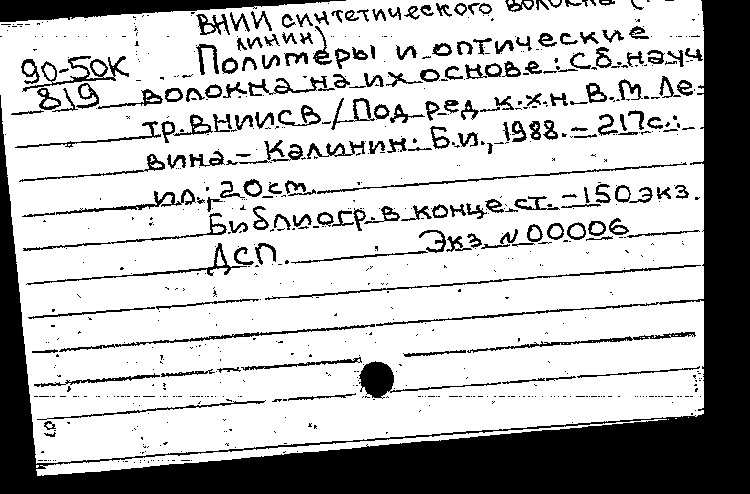 ВНИИ синтетического волокна (
линин)
90-50К
819
Полимеры и оптические
волокна на их основе: Сб. науч
тр. ВНИИСВ / Под ред к.х.н. В.М. Ле-
вина. - Калинин: Б.и., 1988. - 217с.:
ил.; 20 см.
Библиогр. в конце ст. - 150 экз.
ДСП. Экз. N 00006